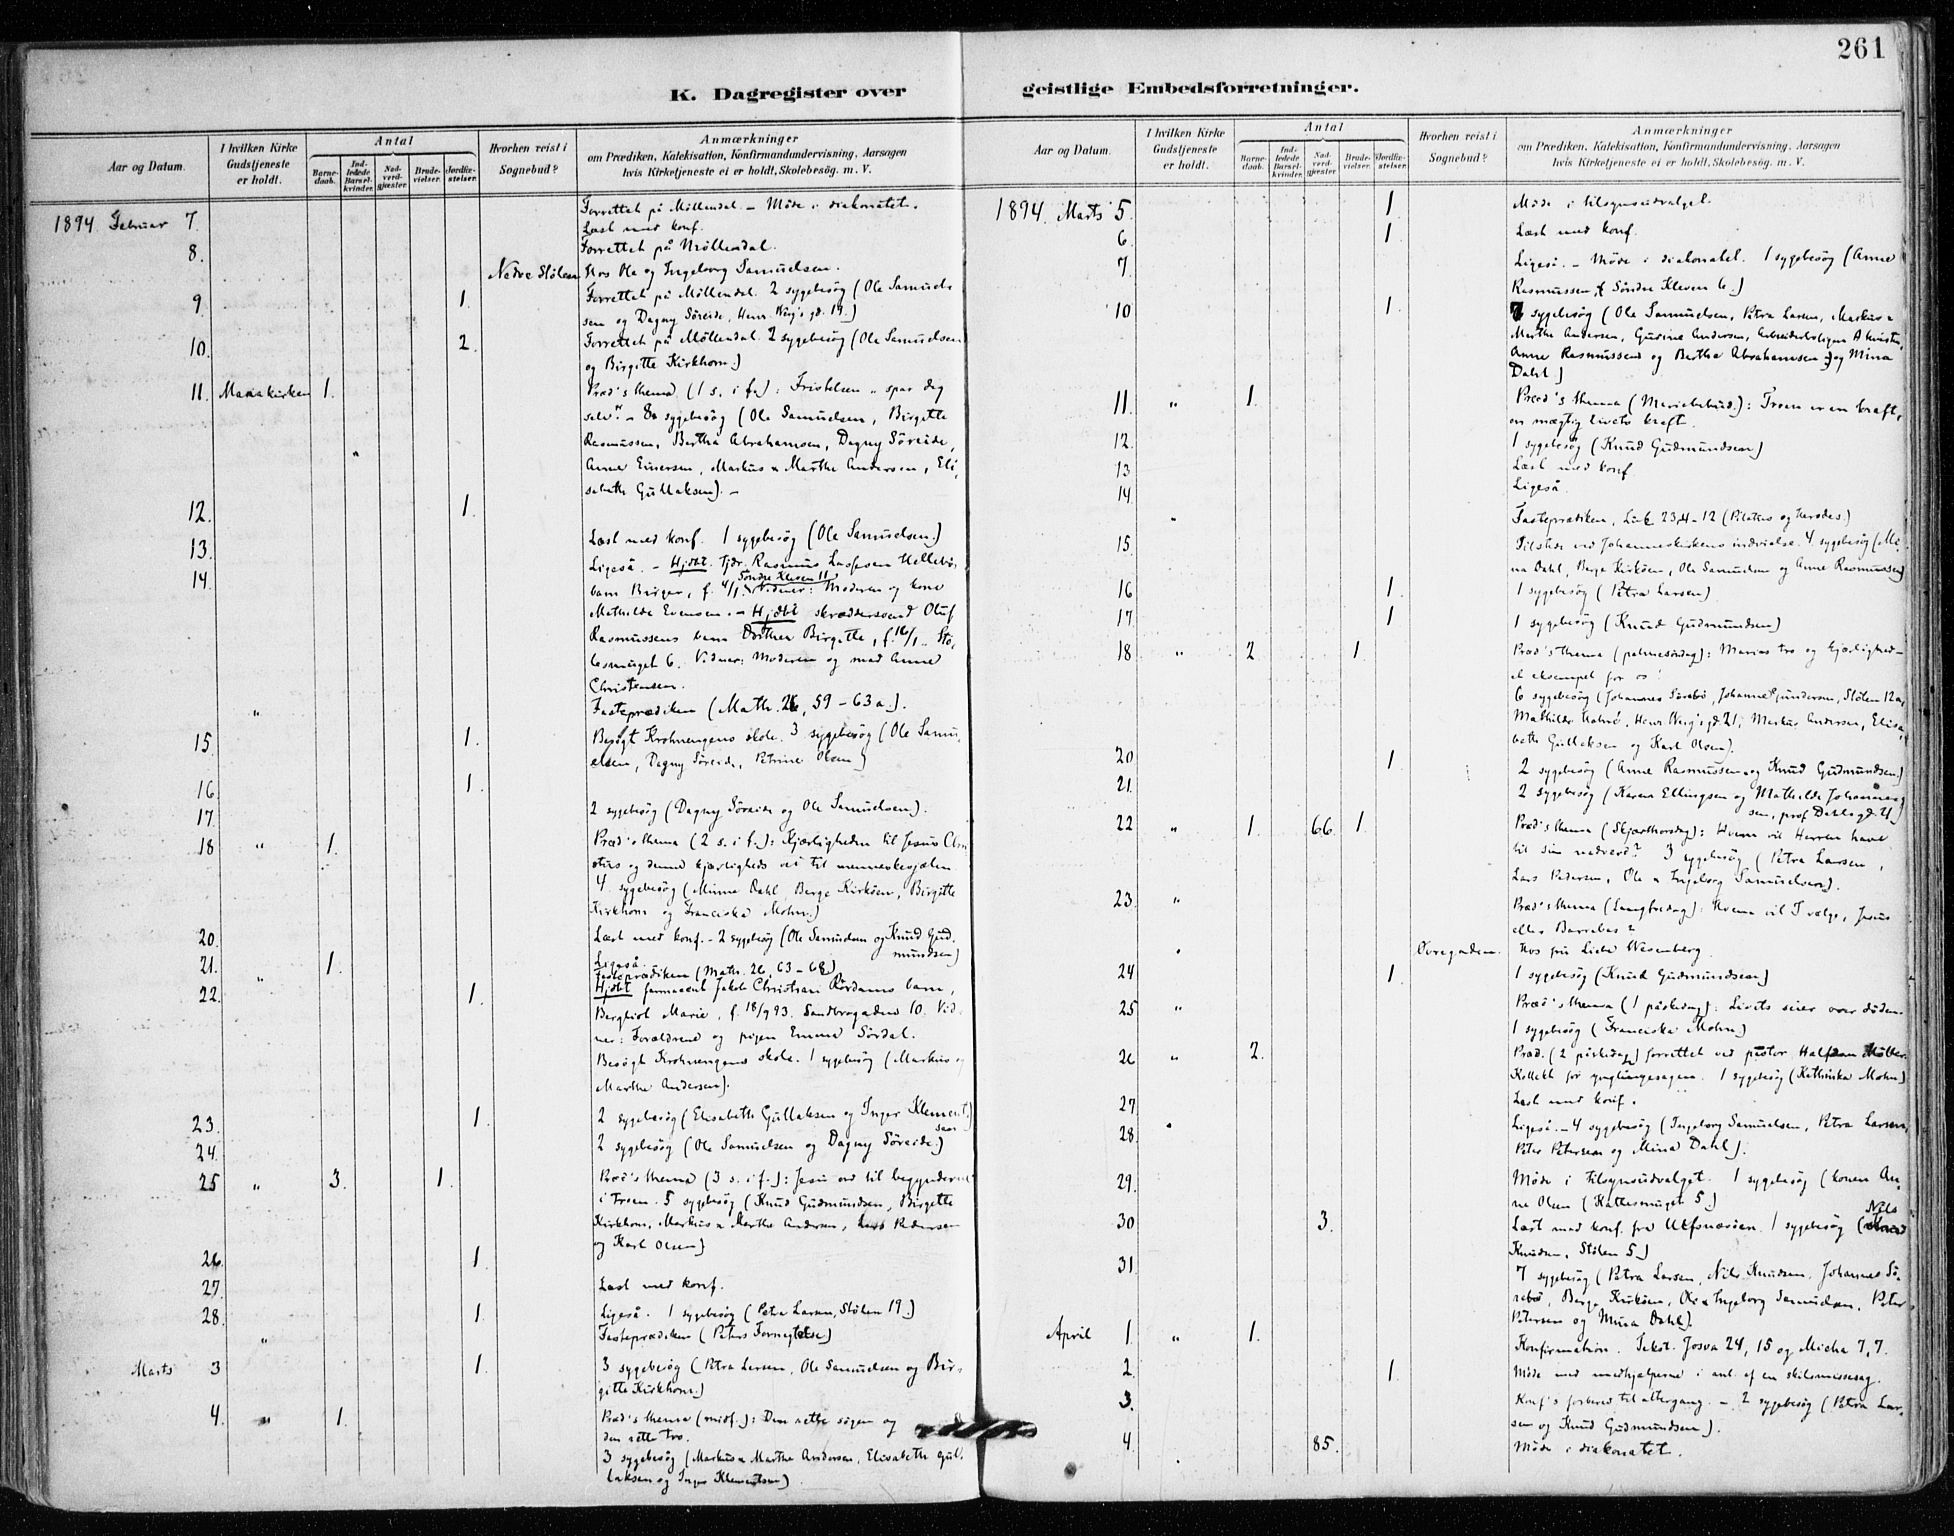 261
K. Dagregister over geistlige Embedsforretninger.
Aar og Datum.
I hvilken Kirke Gudstjeneste er holdt.
Antal
Barnedaab.
Indledede Barselkvinder.
Nadverdgjæster
Brudevielser.
Jordfæstelser.
Hvorhen reist i Sognebud?
Anmærkninger
om Prædiken, Katekisation, Konfirmandundervisning, Aarsagen
hvis Kirketjeneste ei er holdt, Skolebesøg. m. V.
1894 Februar 7. Forrettet på Möllendal. – Möde i diakonatet.
Læst med konf.
8. Forrettet på Möllendal.
Nedre Stölen Hos Ole og Ingeborg Samuelsen.
9 1. Forrettet på Möllendal. 2 sygebesög (Ole Samuel-
sen og Dagny Söreide, Henr. Wergs gd. 19.)
10. 2. Forrettet på Möllendal. 2 sygebesög (Ole Samuelsen
og Birgitte Kirkhorn.)
11. Mariakirken 1. Præd's thema (1 s. i f.): Fristelsen „spar dig
selv". – 8 sygebesög (Ole Samuelsen, Birgitte
Rasmussen, Bertha Abrahamsen, Dagny Söreide,
Anne Einersen, Markus & Marthe Andersen, Eli-
sabeth Gullaksen). –
12. 1.
13. Læst med konf. 1 sygebesög (Ole Samuelsen.)
14. Ligeså. – Hjdbt. Rasmus Lassesen
barn Birger, f. 4/1. Söndre Kleven 11 Vidner: Moderen og kone
Mathilde Evensen. – Hjdbt skræddersvend Oluf
Rasmussens barn Dorthea Birgitte, f. 16/1. Stö-
lesmuget 6. Vidner: Moderen og mad Anne
Christensen.
" Fasteprædiken (Math. 26, 59–63 a.).
15. 1. Besögt Krohnengens skole. 3 sygebesög (Ole Samu-
elsen, Dagny Söreide, Petrine Olsen)
16. 1.
17. 2 sygebesög (Dagny Söreide og Ole Samuelsen).
18 " 1. Præd's thema (2 s. i f.): Kjærligheden til Jesus Chri-
stus og denne kjærligheds vei til menneskesjælen
4. sygebesög (Minna Dahl, Berge Kirköen, Birgitte
Kirkhorn og Franciska Mohn.)
20. Læst med konf. – 2 sygebesög (Ole Samuelsen og Knud Gud-
mundsen)
21. " 1. Ligeså.
Fasteprædiken (Math. 26, 63–68)
22. 1. Hjdbt farmaceut Jakob Christian Rördams barn,
Bergliot Marie, f. 18/9 93. Sandbrogaden 10. Vid-
ner: Forældrene og pigen Emma Sördal.
Besögt Krohnengens skole. 1 sygebesög (Markus og
Marthe Andersen).
23. 1. 2 sygebesög (Elisabeth Gullaksen og Inger Klement-
sen)
24. 2 sygebesög (Ole Samuelsen og Dagny Söreide.)
25 " 3. 1. Præd's thema (3 s. i f.): Jesu ord til begynderne
i Troen. 5 sygebesög (Knud Gudmundsen, Birgitte
Kirkhorn, Markus & Marthe Andersen, Lars Pedersen
og Karl Olsen)
26. 1.
27. Læst med konf.
28. 1. Ligeså. 1 sygebesög (Petra Larsen, Stölen 19.)
" Fasteprædiken (Peters Fornegtelse)
Marts 3 1. 3 sygebesög (Petra Larsen, Ole Samuelsen og Bir-
gitte Kirkhorn.)
4. " 1. Præd's thema (midf.): Den rette sögen og
den rette tro.
3 sygebesög (Markus & Marthe Andersen, Elisabeth Gul-
laksen og Inger Klementsen).
Aar og Datum.
I hvilken Kirke Gudstjeneste er holdt.
Antal
Barnedaab.
Indledede Barselkvinder.
Nadverdgjæster
Brudevielser.
Jordfæstelser.
Hvorhen reist i Sognebud?
Anmærkninger
om Prædiken, Katekisation, Konfirmandundervisning, Aarsagen
hvis Kirketjeneste ei er holdt, Skolebesøg. m. V.
1894 Marts 5. 1 Möde i tilsynsudvalget.
6. 1. Læst med konf.
7. Ligeså. – Möde i diakonatet. 1 sygebesög (Anne
Rasmussen, Söndre Kleven 6.)
10 1. 7 sygebesög (Ole Samuelsen, Petra Larsen, Markus &
Marthe Andersen, Gurine Andersen, Arbeiderboligen
Anne Rasmussen og Bertha Abrahamsen og Mina
Dahl)
11. " 1. Præd's thema (Mariebebud.): Troen er en kraft,
en mægtig livets kraft.
12. 1 sygebesög (Knud Gudmundsen)
13. Læst med konf.
14. Ligeså
" Fasteprædiken, Luk 23, 4–12 (Pilatus og Herodes.)
15. Tilstede ved Johanneskirkens indvielse. 4 sygebesög (Mi-
na Dahl, Berge Kirköen, Ole Samuelsen og Anne Rasmussen)
16 1. 1 sygebesög (Petra Larsen)
17. 1 1 sygebesög (Knud Gudmundsen)
18 " 2. 1. Præd's thema (palmesöndag): Marias tro og kjærlighed –
et eksempel for os!
6 sygebesög (Johannes Sörebö, Johanne Gundersen, Stölen 12a,
Mathilde, Henr. Wergs gd. 21, Markus Andersen, Elisa-
beth Gullaksen og Karl Olsen).
20 1. 2 sygebesög (Anne Rasmussen og Knud Gudmundsen.)
21. 2 sygebesög (Karen Ellingsen og Mathilde Johannes-
sen, prof Dahls gd. 21)
22 " 1. 66 1. Præd's thema (Skjærthorsdag): Hvem vil Herren have
til sin nadverd? 3 sygebesög (Petra Larsen,
Lars Pedersen, Ole & Ingeborg Samuelsen).
23. " Præd's thema (Langfredag): Hvem vil I vælge, Jesus
eller Barrabas?
Övregaden. Hos fru Wesenberg.
24 1. 1 sygebesög (Knud Gudmundsen)
25 " Præd's thema (1 påskedag): Livets seier over döden.
1 sygebesög (Franciska Mohn)
26 " 2. Præd. (2 påskedag) forrettet ved pastor Halfdan Möller.
Kollekt for ynglingesagen. 1 sygebesög (Kathinka Mohn)
27 Læst med konf.
28. Ligeså. – 4 sygebesög (Ingeborg Samuelsen, Petra Larsen,
Peter Petersen og Mina Dahl).
29. Möde i tilsynsudvalget. 1 sygebesög (konen An-
ne Olsen (Kattesmuget 5.)
30 3. Læst med konf. fra 1 sygebesög (Nils
Knudsen, Stölen 5)
31. 7 sygebesög (Petra Larsen, Nils Knudsen, Johannes Sö-
rebö, Berge Kirköen, Ole & Ingeborg Samuelsen, Peter
Petersen og Mina Dahl).
April 1. " 1. Konfirmation. Tekst. Josva 24, 15 og Micha 7, 7.
2. 1. Möde med medhjelperne i anl. af en skilsmissesag.
3. Konf's forbered til altergang. – 2 sygebesög (Petra Lar-
sen og Knud Gudmundsen).
4. 85. Möde i diakonatet.